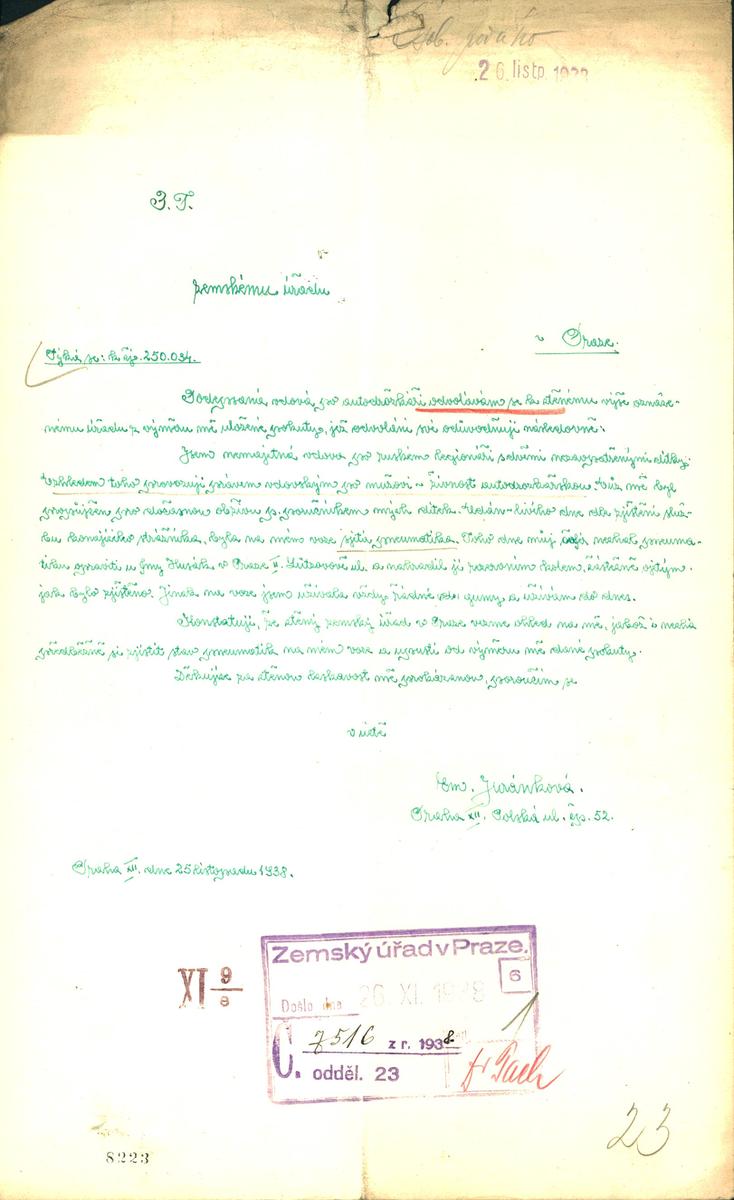 26. listp. 1938
P. T.
zemskému úřadu
v Praze.
Týká se: k čj. 250.034.
Podepsaná vdova po autodrožkáři odvolávám se ku ctěnému výše označe-
nému úřadu z výměru mě uložené pokuty, jež odvolání své odůvodňuji následovně:
Jsem nemajetná vdova po ruském legionáři s dvěmi nezaopatřenými dítky.
Vzhledem toho provozuji právem vdovským po mužovi – živnost autodrožkářskou. Vůz mě byl
propůjčen pro dočasnou obživu p. poručníkem mých dítek. Udán-livého dne dle zjištění služ-
bu konajícího strážníka, byla na mém voze sjetá pneumatika. Toho dne můj řidič nechal pneuma-
tiku opraviti u fmy Husák, v Praze II. Lützovově ul. a nahradil ji rezervním kolem, částečně ojetým.
jak bylo zjištěno. Jinak na voze jsem užívala vždy řádné gumy a užívám do dnes.
Konstatuji, že ctěný zemský úřad v Praze vezme ohled na mě, jakož i nechá
předběžně si zjistit stav pneumatik na mém voze a upustí od výměru mě dané pokuty.
Děkujíc za ctěnou laskavost mě prokázanou, poroučím se
v úctě
Em. Juránková.
Praha XII. Polská ul. čp. 52.
Praha XII. dne 25 listopadu 1938.
Zemský úřad v Praze.
6
XI 9/8
Došlo dne 26. XI. 1938
Č. 7516 z r. 1938
odděl. 23
Dr Pach
23
8223